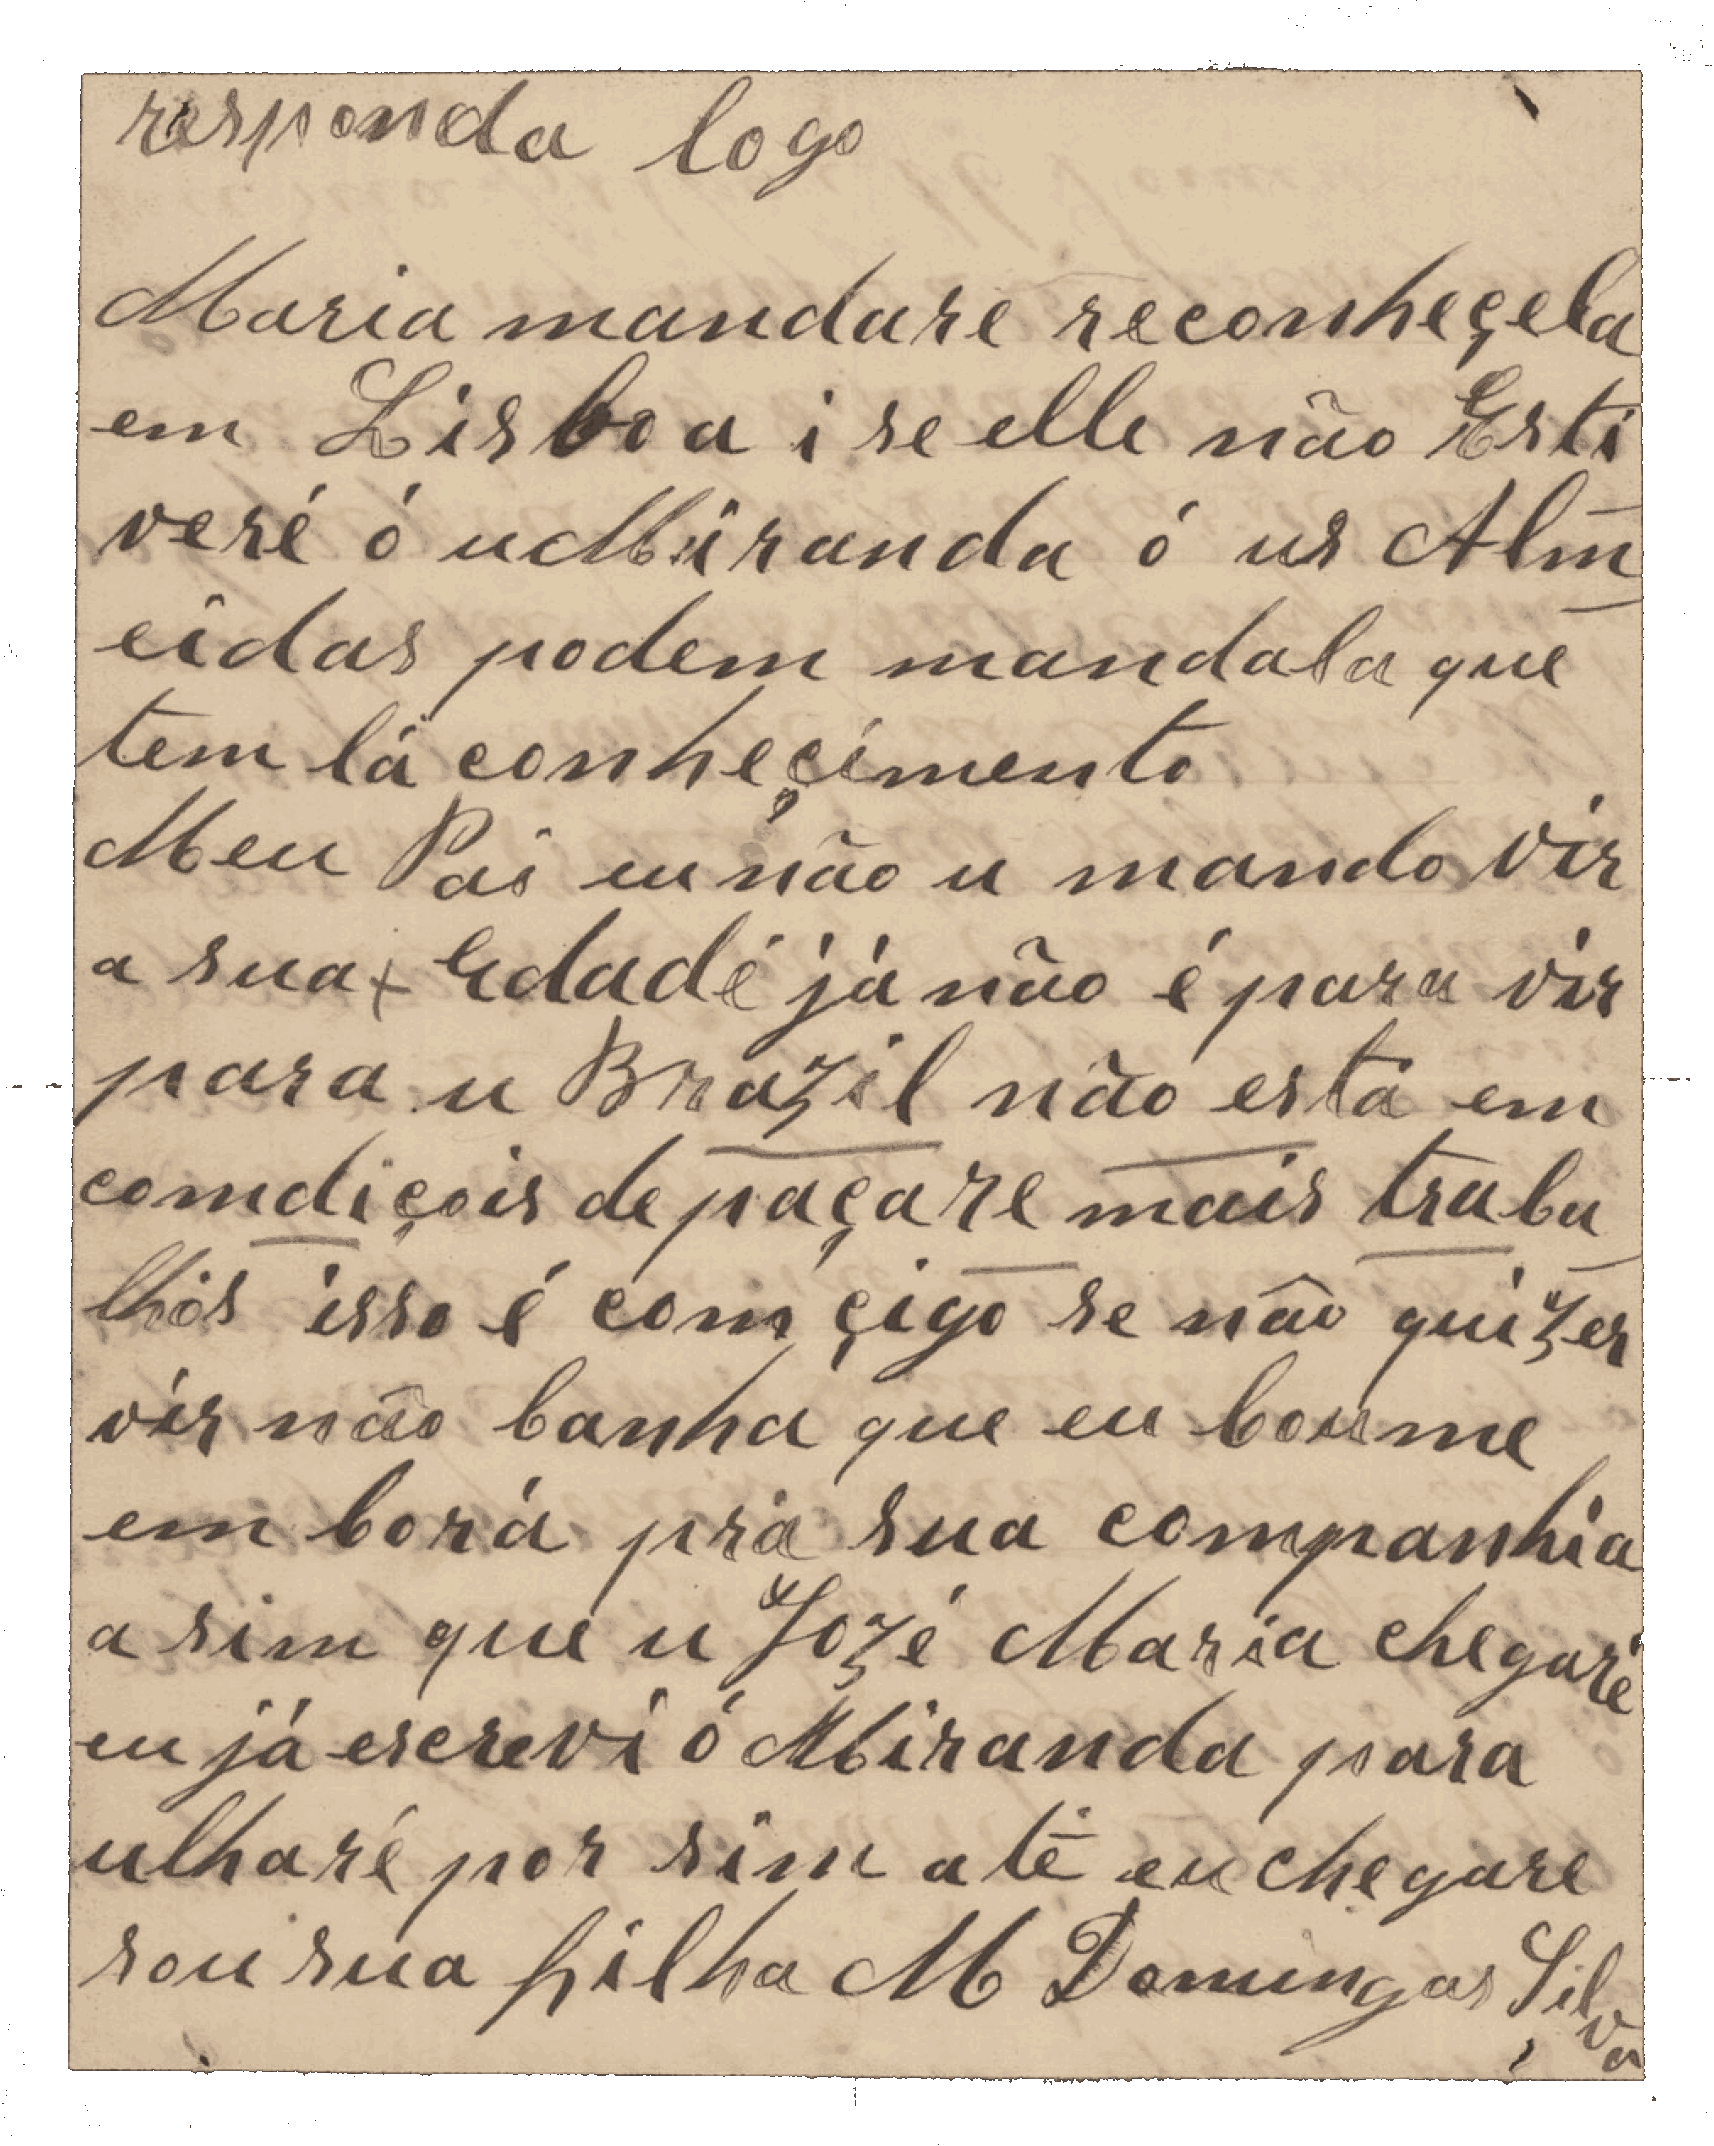 responda logo
Maria mandare reconheçela
em Lisboa i se elle não Esti
veré ó u Miranda ó us Alm
eidas podem mandala que
tem lá conheçimento
Meu Pai eu não u mando vir
a sua Edadé já não é para vir
para u Brazil não está em
comdiçois de paçare mais traba
lhos isso é comçigo se não quizer
vir não banha que eu bou me
em borá prá sua companhia
a sim que u Jozé Maria chegaré
eu já escrevi ó Miranda para
ulharé por sim até eu chegare
sou sua filha M Domingas Silva